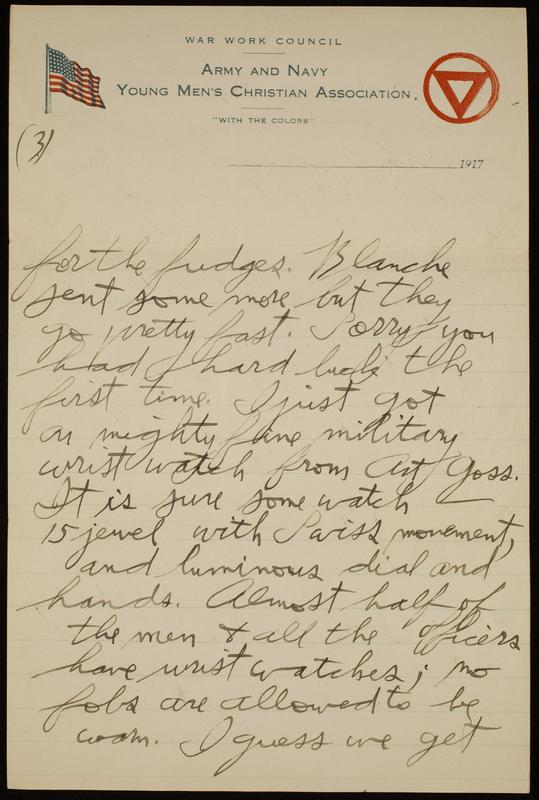 WAR WORK COUNCIL
ARMY AND NAVY
YOUNG MEN'S CHRISTIAN ASSOCIATION.
"WITH THE COLORS"
(3)
1917
for the fudges. Blanche
sent some more but they
go pretty fast. Sorry you
had hard luck the
first time. I just got
a mighty fine military
wrist watch from Art Goss.
It is sure some watch
15 jewel with Swiss movement,
and luminous dial and
hands. Almost half of
the men & all the officers
have wrist watches; no
fobs are allowed to be
worn. I guess we get